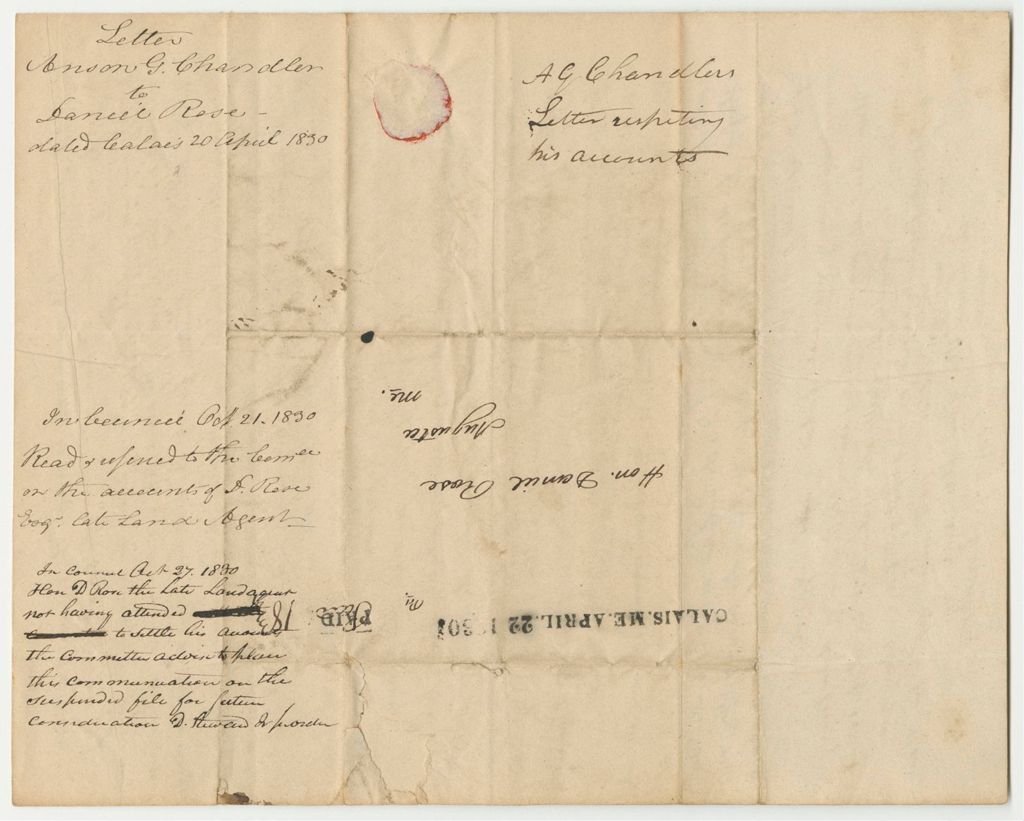 Letter
Anson G. Chandler
to
Daniel Rose -
dated Calais 20 April 1830
In Council Oct 21. 1830
Read & referred to the Com.ee
on the accounts of D. Rose
Esqr. late Land Agent
In council Oct 27. 1830
Hon D Rose the late Land agent
not having attended
to settle his accounts
the committee advise to place
this communication on the
suspended file for future
consideration D. Steward Jr p order
A G Chandlers
Letter respecting
his accounts
CALAIS. ME. APRIL. 22 1830
PAID
Paid
18 3/4
Hon. Daniel Rose
Augusta
Me.